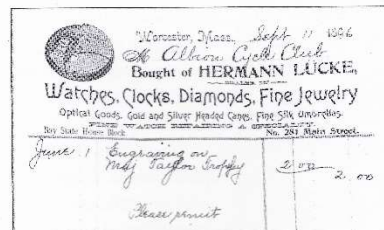 Worcester, Mass., Sept 11 1896
M Albion Cycle Club
Bought of HERMANN LUCKE,
DEALER IN
Watches, Clocks, Diamonds, Fine Jewelry
Optical Goods, Gold and Silver Headed Canes, Fine Silk Umbrellas.
FINE WATCH REPAIRING A SPECIALTY.
Bay State House Block No. 281 Main Street.
June 1 Engraving on
Maj Taylor Trophy 2 00
2 00
Please remit